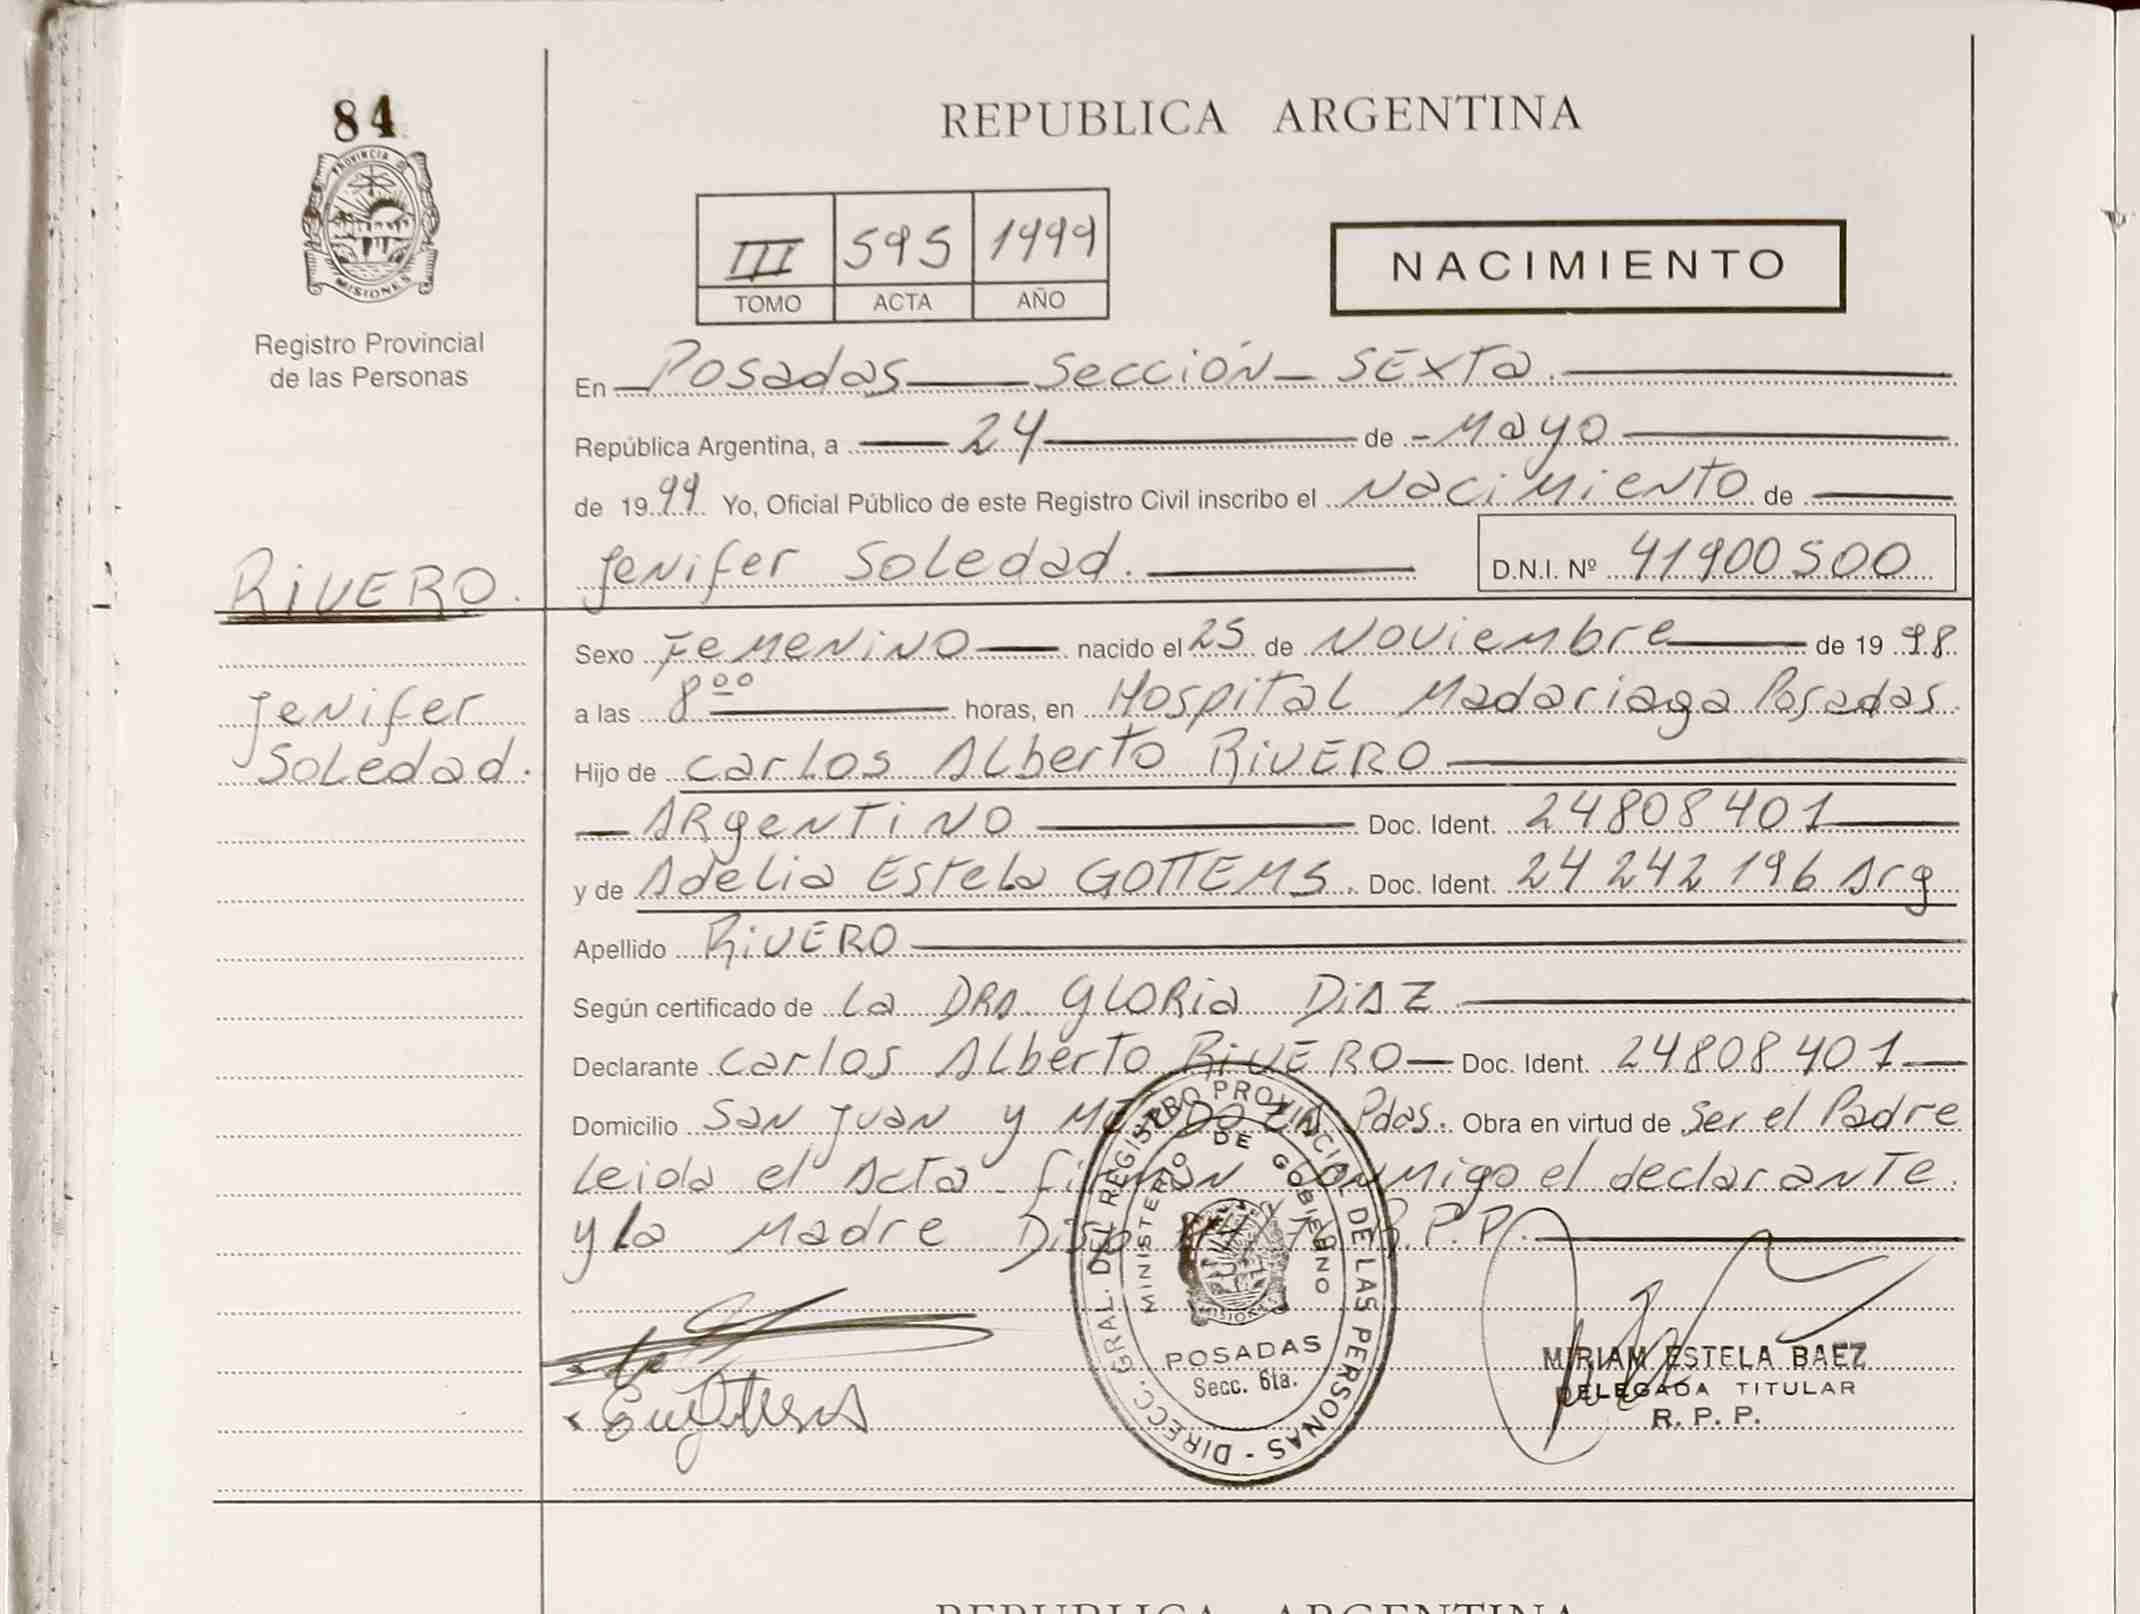 84
PROVINCIA DE
MISIONES
Registro Provincial
de las Personas
RIVERO.
Jenifer
Soledad.
REPUBLICA ARGENTINA
III 595 1999
TOMO ACTA AÑO
NACIMIENTO
En Posadas Sección SEXTA.
República Argentina, a 24 de Mayo
de 1999 Yo, Oficial Público de este Registro Civil inscribo el Nacimiento de
Jenifer Soledad. D.N.I. Nº 41900500
Sexo Femenino nacido el 25 de Noviembre de 1998
a las 8 00 horas, en Hospital Madariaga Posadas.
Hijo de Carlos Alberto RIVERO
Argentino Doc. Ident. 24808401
y de Adelia Estela GOTTEMS. Doc. Ident. 24 242 196 Arg
Apellido RIVERO
Según certificado de La DRA. GLORIA DIAZ
Declarante Carlos Alberto RIVERO Doc. Ident. 24808401
Domicilio San Juan y Mendoza Pdas. Obra en virtud de Ser el Padre
Leida el Acta firman conmigo el declarante
y la Madre R.P.P.
DIRECC. GRAL. DEL REGISTRO PROVINCIAL DE LAS PERSONAS -
MINISTERIO DE GOBIERNO
MISIONES
POSADAS
Secc. 6ta.
MIRIAM ESTELA BAEZ
DELEGADA TITULAR
R. P. P.
REPUBLICA ARGENTINA